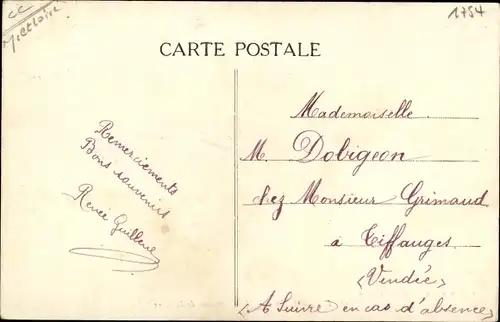 1754
CARTE POSTALE
Remerciements
Bons souvenirs
Renée
Mademoiselle
M. Dobigeon
chez Monsieur Grimaud
à Tiffauges
(Vendée)
(A Suivre en cas d'absence)